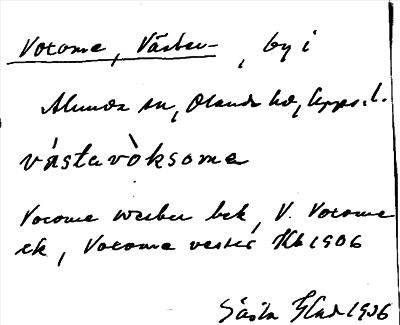 Voxome, Väster-, by i
Alunda sn, Olands hd, Upps. l.
vástavòksome
Voxome wester bek, V. Voxome
ek, Voxome vester Hb 1906
Gösta 1936